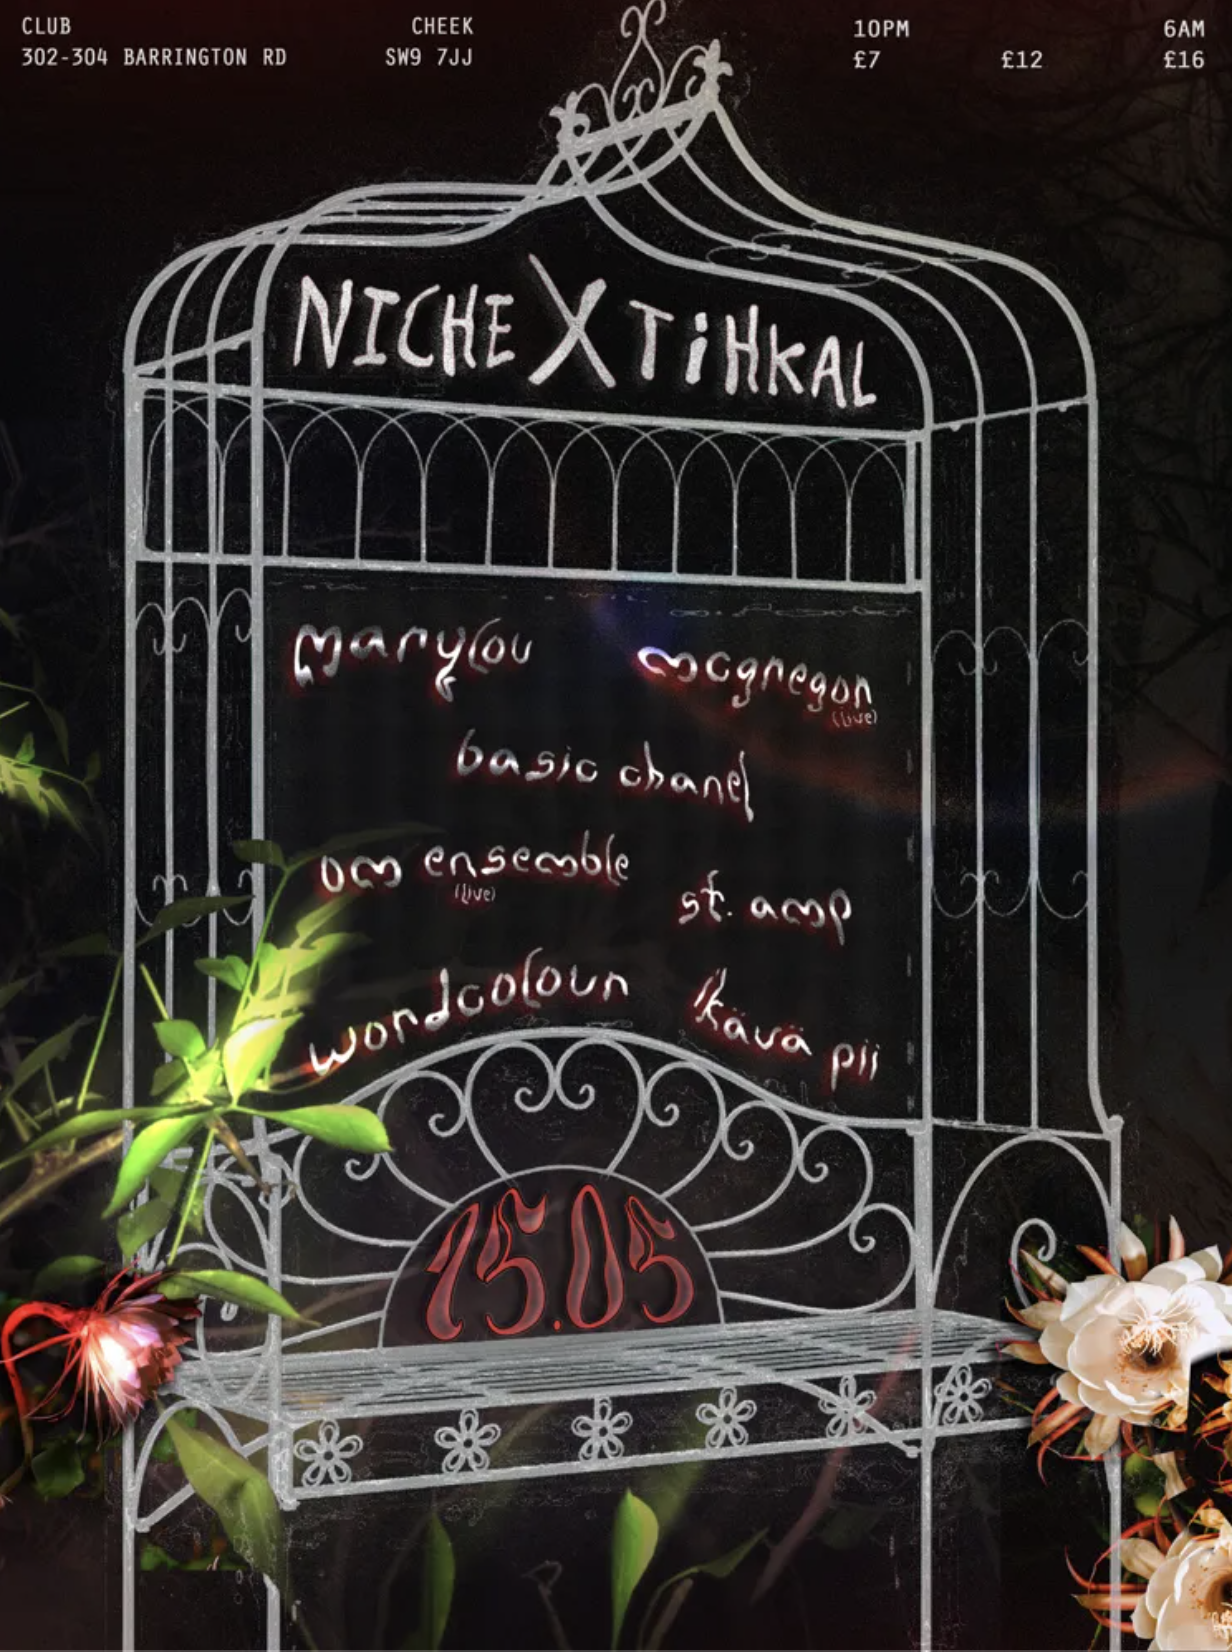 CLUB CHEEK 10PM 6AM
302-304 BARRINGTON RD SW9 7JJ £7 £12 £16
NICHE X TiHKAL
marylou mcgregor
(live)
basic chanel
om ensemble
(live)
st. amp
wordcolour ikävä pii
15.05